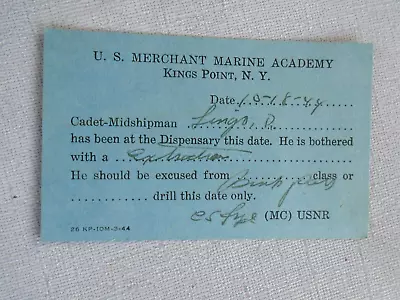 U. S. MERCHANT MARINE ACADEMY
KINGS POINT, N. Y.
Date 10-18-44
Cadet-Midshipman
has been at the Dispensary this date. He is bothered
with a extraction
He should be excused from class or
drill this date only.
(MC) USNR
26 KP-10M-3-44